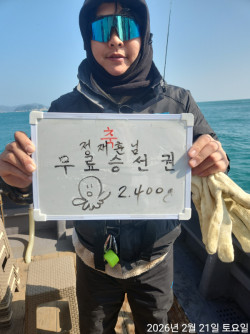 축
정재훈님
무료승선권
2.400g
2026년 2월 21일 토요일